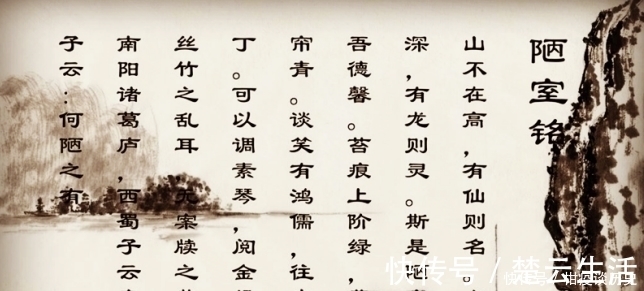 陋室铭
山不在高，有仙则名
深，有龙则灵。斯是
吾德馨。苔痕上阶绿，
帘青。谈笑有鸿儒，往
丁。可以调素琴，阅金
丝竹之乱耳，无案牍之
南阳诸葛庐，西蜀子云
子云：何陋之有
快传号 / 楚云生活